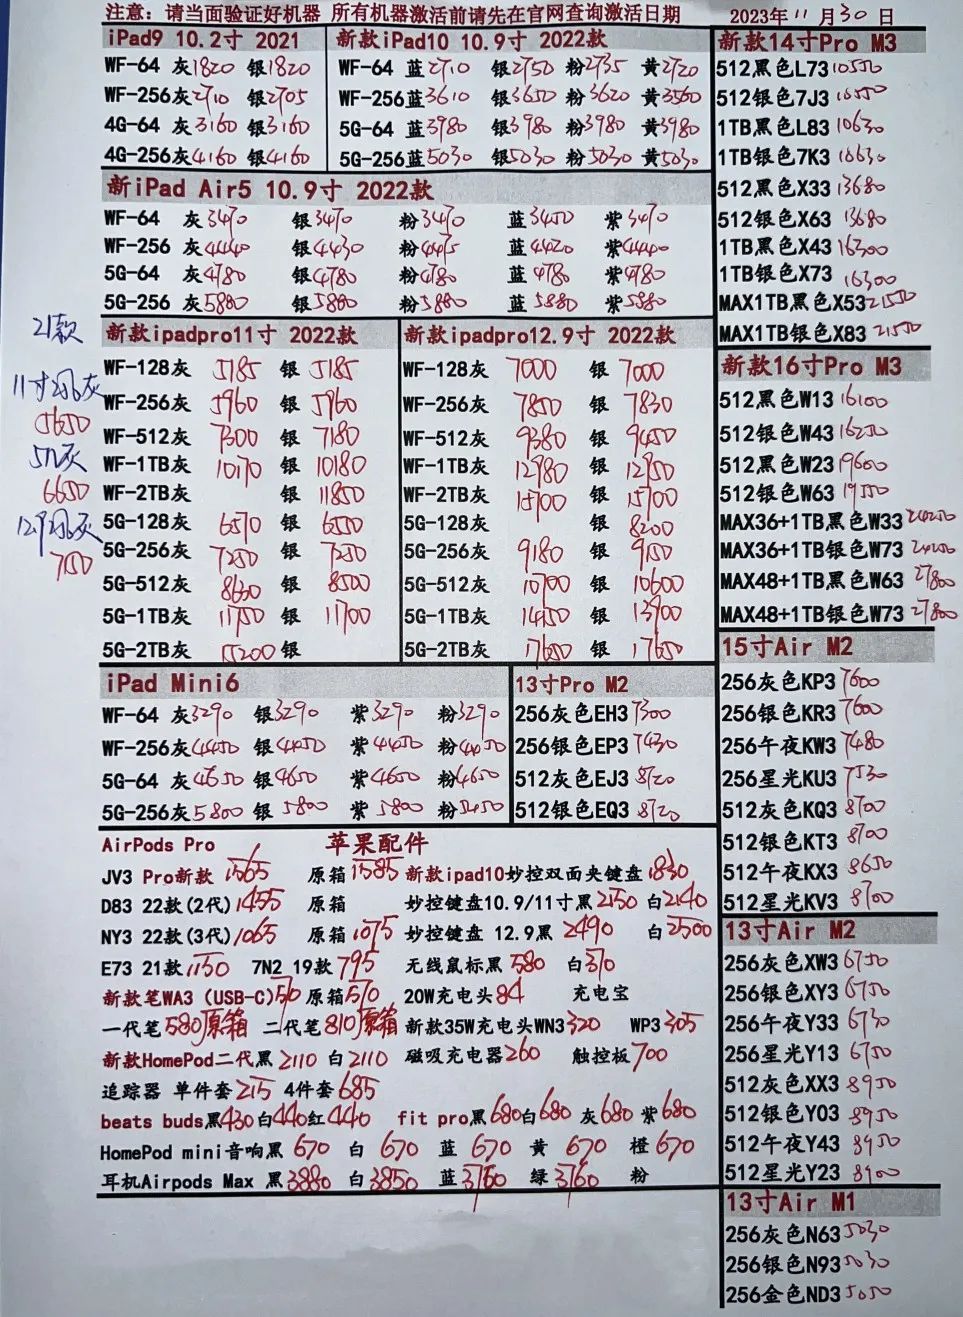 注意：请当面验证好机器 所有机器激活前请先在官网查询激活日期
2023年11月30日
iPad9 10.2寸 2021
WF-64 灰1820 银1820
WF-256灰2710 银2705
4G-64 灰3160 银3160
4G-256灰4160 银4160
新款iPad10 10.9寸 2022款
WF-64 蓝2710 银2750 粉2735 黄2720
WF-256蓝3610 银3650 粉3620 黄3560
5G-64 蓝3980 银3980 粉3980 黄3980
5G-256蓝5030 银5030 粉5030 黄5030
新iPad Air5 10.9寸 2022款
WF-64 灰3470 银3470 粉3470 蓝3450 紫3470
WF-256 灰4440 银4430 粉4475 蓝4420 紫4440
5G-64 灰4780 银4780 粉4780 蓝4780 紫4780
5G-256 灰5880 银5880 粉5880 蓝5880 紫5880
21款
11寸256灰
5650
512灰
6650
12.9 256灰
7150
新款ipadpro11寸 2022款
WF-128灰 5185 银 5185
WF-256灰 5960 银 5960
WF-512灰 7300 银 7180
WF-1TB灰 10170 银 10180
WF-2TB灰 银 11850
5G-128灰 6570 银 6550
5G-256灰 7250 银 7250
5G-512灰 8630 银 8500
5G-1TB灰 11750 银 11700
5G-2TB灰 15200 银
新款ipadpro12.9寸 2022款
WF-128灰 7000 银 7000
WF-256灰 7850 银 7830
WF-512灰 9380 银 9450
WF-1TB灰 12980 银 12950
WF-2TB灰 15700 银 15700
5G-128灰 银 8200
5G-256灰 9180 银 9150
5G-512灰 10700 银 10600
5G-1TB灰 14450 银 13900
5G-2TB灰 17650 银 17650
iPad Mini6
WF-64 灰3290 银3290 紫3290 粉3290
WF-256灰4450 银4450 紫4450 粉4450
5G-64 灰4650 银4650 紫4650 粉4650
5G-256灰5800 银5800 紫5800 粉5450
13寸Pro M2
256灰色EH3 7300
256银色EP3 7430
512灰色EJ3 8720
512银色EQ3 8720
AirPods Pro 苹果配件
JV3 Pro新款 1565 原箱1585 新款ipad10妙控双面夹键盘1830
D83 22款(2代)1455 原箱 妙控键盘10.9/11寸黑2150 白2140
NY3 22款(3代)1065 原箱1075 妙控键盘 12.9黑 2490 白2500
E73 21款1150 7N2 19款795 无线鼠标黑 580 白370
新款笔WA3 (USB-C)510 原箱570 20W充电头84 充电宝
一代笔580原箱 二代笔810原箱 新款35W充电头WN3320 WP3 305
新款HomePod二代黑2110 白2110 磁吸充电器260 触控板700
追踪器 单件套215 4件套685
beats buds黑430白440红440 fit pro黑680白680 灰680 紫680
HomePod mini音响黑 670 白 670 蓝 670 黄 670 橙670
耳机Airpods Max 黑3880 白3850 蓝3760 绿3760 粉
新款14寸Pro M3
512黑色L73 10550
512银色7J3 10550
1TB黑色L83 10630
1TB银色7K3 10630
512黑色X33 13680
512银色X63 13680
1TB黑色X43 16300
1TB银色X73 16300
MAX1TB黑色X53 21550
MAX1TB银色X83 21550
新款16寸Pro M3
512黑色W13 16100
512银色W43 16250
512黑色W23 19600
512银色W63 19550
MAX36+1TB黑色W33 24250
MAX36+1TB银色W73 24250
MAX48+1TB黑色W63 27800
MAX48+1TB银色W73 27800
15寸Air M2
256灰色KP3 7600
256银色KR3 7600
256午夜KW3 7480
256星光KU3 7530
512灰色KQ3 8700
512银色KT3 8700
512午夜KX3 8650
512星光KV3 8700
13寸Air M2
256灰色XW3 6750
256银色XY3 6750
256午夜Y33 6730
256星光Y13 6750
512灰色XX3 8950
512银色Y03 8950
512午夜Y43 8950
512星光Y23 8900
13寸Air M1
256灰色N63 5030
256银色N93 5030
256金色ND3 5050